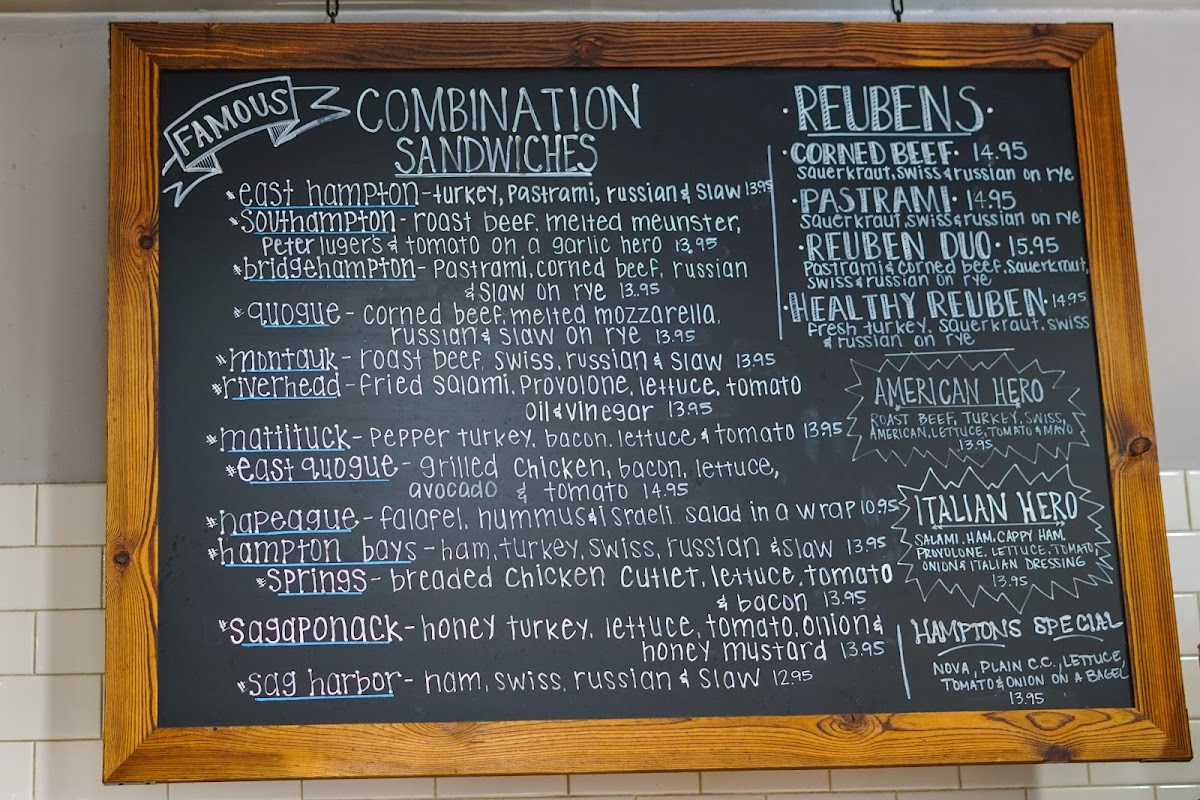 FAMOUS
COMBINATION
SANDWICHES
*east hampton-turkey, Pastrami, russian & slaw 13.95
*Southampton- roast beef, melted meunster,
Peter luger's & tomato on a garlic hero 13.95
*bridgehampton- Pastrami, corned beef, russian
& slaw on rye 13.95
*quogue - corned beef, melted mozzarella,
russian & slaw on rye 13.95
*montauk - roast beef, swiss, russian & slaw 13.95
*riverhead-fried salami, Provolone, lettuce, tomato
oil & vinegar 13.95
*mattituck- pepper turkey, bacon, lettuce & tomato 13.95
*east quogue- grilled chicken, bacon, lettuce,
avocado & tomato 14.95
*napeague-falafel, hummus & israeli salad in a wrap 10.95
*hampton bays-ham, turkey, swiss, russian & slaw 13.95
*springs- breaded chicken cutlet, lettuce, tomato
& bacon 13.95
*sagaponack-honey turkey, lettuce, tomato, onion &
honey mustard 13.95
*sag harbor- ham, swiss, russian & slaw 12.95
·REUBENS·
·CORNED BEEF· 14.95
sauerkraut, swiss & russian on rye
·PASTRAMI· 14.95
sauerkraut, swiss & russian on rye
·REUBEN DUO· 15.95
Pastrami & corned beef, sauerkraut,
swiss & russian on rye
·HEALTHY REUBEN· 14.95
fresh turkey, sauerkraut, swiss
& russian on rye
AMERICAN HERO
ROAST BEEF, TURKEY, SWISS,
AMERICAN, LETTUCE, TOMATO & MAYO
13.95
ITALIAN HERO
SALAMI, HAM, CAPPY HAM,
PROVOLONE, LETTUCE, TOMATO,
ONION & ITALIAN DRESSING
13.95
HAMPTONS SPECIAL
NOVA, PLAIN C.C., LETTUCE,
TOMATO & ONION ON A BAGEL
13.95